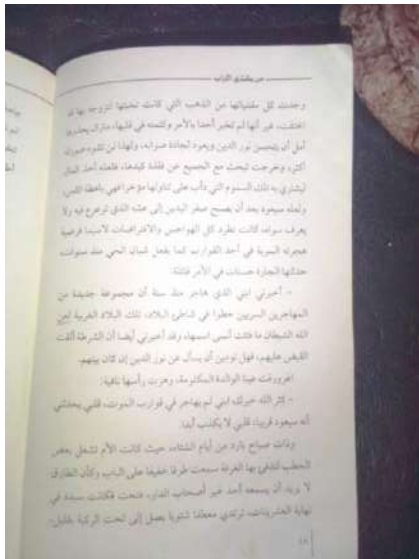 من يشتري التراب
وجدت كل مقتنياتها من الذهب التي كانت تخبئها لتزوجه بها قد
اختفت، غير أنها لم تخبر أحدا بالأمر وكتمته في قلبها، مازال يحذوها
أمل أن يتحسن نور الدين ويعود لجادة صوابه، ولهذا لن تشوه صورته
أكثر، وخرجت تبحث مع الجميع عن فلذة كبدها، فلعله أخذ المال
ليشتري به تلك السموم التي دأب على تناولها مؤخرا فهي باهظة الثمن،
ولعله سيعود بعد أن يصبح صفر اليدين إلى عشه الذي ترعرع فيه ولا
يعرف سواه، كانت تطرد كل الهواجس والافتراضات لاسيما فرضية
هجرته السرية في أحد القوارب كما يفعل شبان الحي منذ سنوات،
حدثتها الجارة حسنات في الأمر قائلة:
- أخبرني ابني الذي هاجر منذ سنة أن مجموعة جديدة من
المهاجرين السريين حطوا في شاطئ البلاد، تلك البلاد الغربية لعن
الله الشيطان ما فتئت أنسى اسمها، وقد أخبرني أيضا أن الشرطة ألقت
القبض عليهم، فهل تودين أن يسأل عن نور الدين إن كان بينهم.
اغرورقت عينا الوالدة المكلومة، وهزت رأسها نافية:
- كثر الله خيرك، ابني لم يهاجر في قوارب الموت، قلبي يحدثني
أنه سيعود قريبا، قلبي لا يكذب أبدا.
وذات صباح بارد من أيام الشتاء، حيث كانت الأم تشعل بعض
الحطب لتدفئ بها الغرفة سمعت طرقا خفيفا على الباب وكأن الطارق
لا يريد أن يسمعه أحد غير أصحاب الدار، فتحت فكانت سيدة في
نهاية العشرينات، ترتدي معطفا شتويا يصل إلى تحت الركبة بقليل،